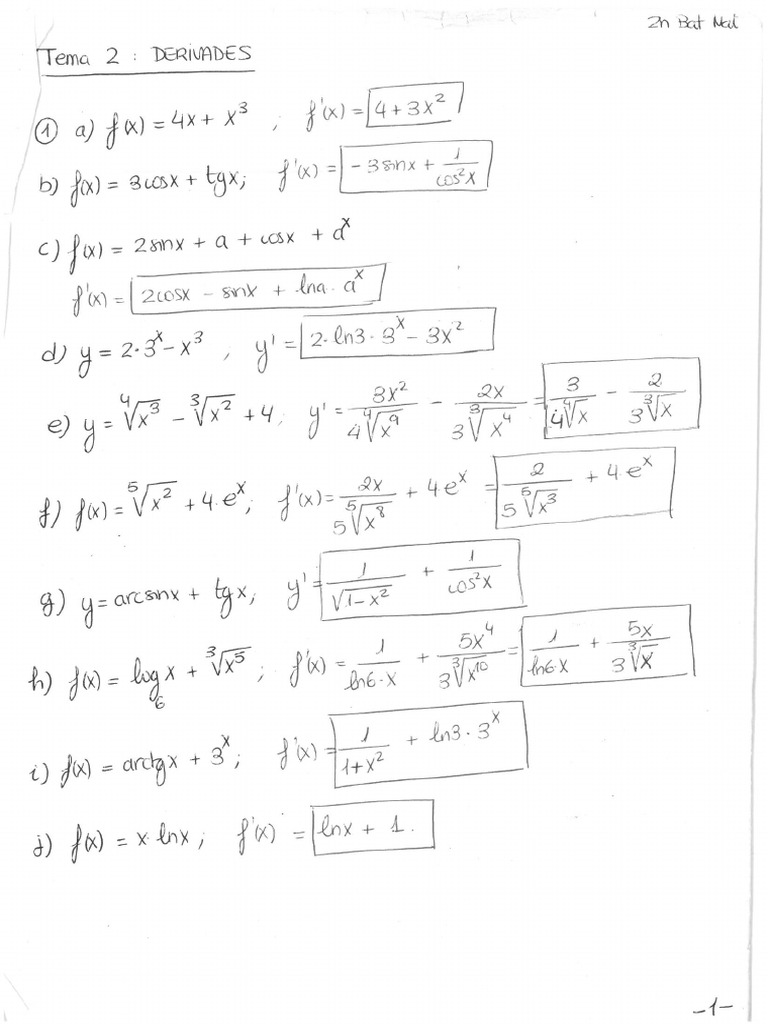 2n Bat Nat
Tema 2 : DERIVADES
① a) f(x) = 4x + x³ ; f'(x) = 4 + 3x²
b) f(x) = 3cosx + tgx; f'(x) = -3sinx + 1/cos²x
c) f(x) = 2sinx + a + cosx + aˣ
f'(x) = 2cosx - sinx + lna · aˣ
d) y = 2·3ˣ - x³ , y' = 2·ln3·3ˣ - 3x²
e) y = ⁴√x³ - ³√x² + 4; y' = 3x²/(4 ⁴√x⁹) - 2x/(3 ³√x⁴) = 3/(4 ⁴√x) - 2/(3 ³√x)
f) f(x) = ⁵√x² + 4·eˣ; f'(x) = 2x/(5 ⁵√x⁸) + 4eˣ = 2/(5 ⁵√x³) + 4·eˣ
g) y = arcsinx + tgx; y' = 1/√(1-x²) + 1/cos²x
h) f(x) = log₆x + ³√x⁵ ; f'(x) = 1/(ln6·x) + 5x⁴/(3 ³√x¹⁰) = 1/(ln6·x) + 5x/(3 ³√x)
i) f(x) = arctgx + 3ˣ; f'(x) = 1/(1+x²) + ln3·3ˣ
j) f(x) = x·lnx; f'(x) = lnx + 1.
-1-